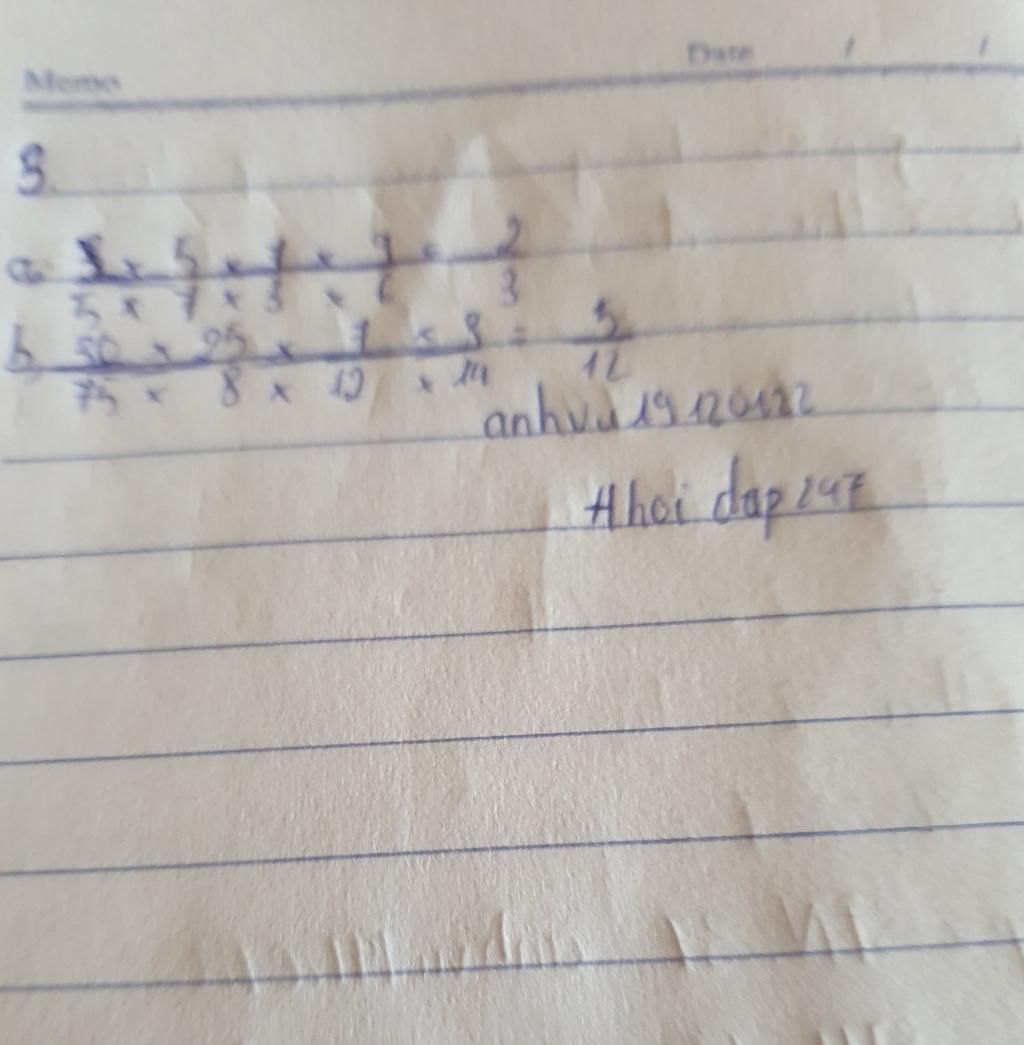 Memo Date / /
3
a 5 × 7 × 9 = 2
5 × 7 × 3 × 6 3
b, 50 × 25 × 7 × 8 = 5
75 × 8 × 12 × 14 12
anhvu19120122
#hoi dap 247